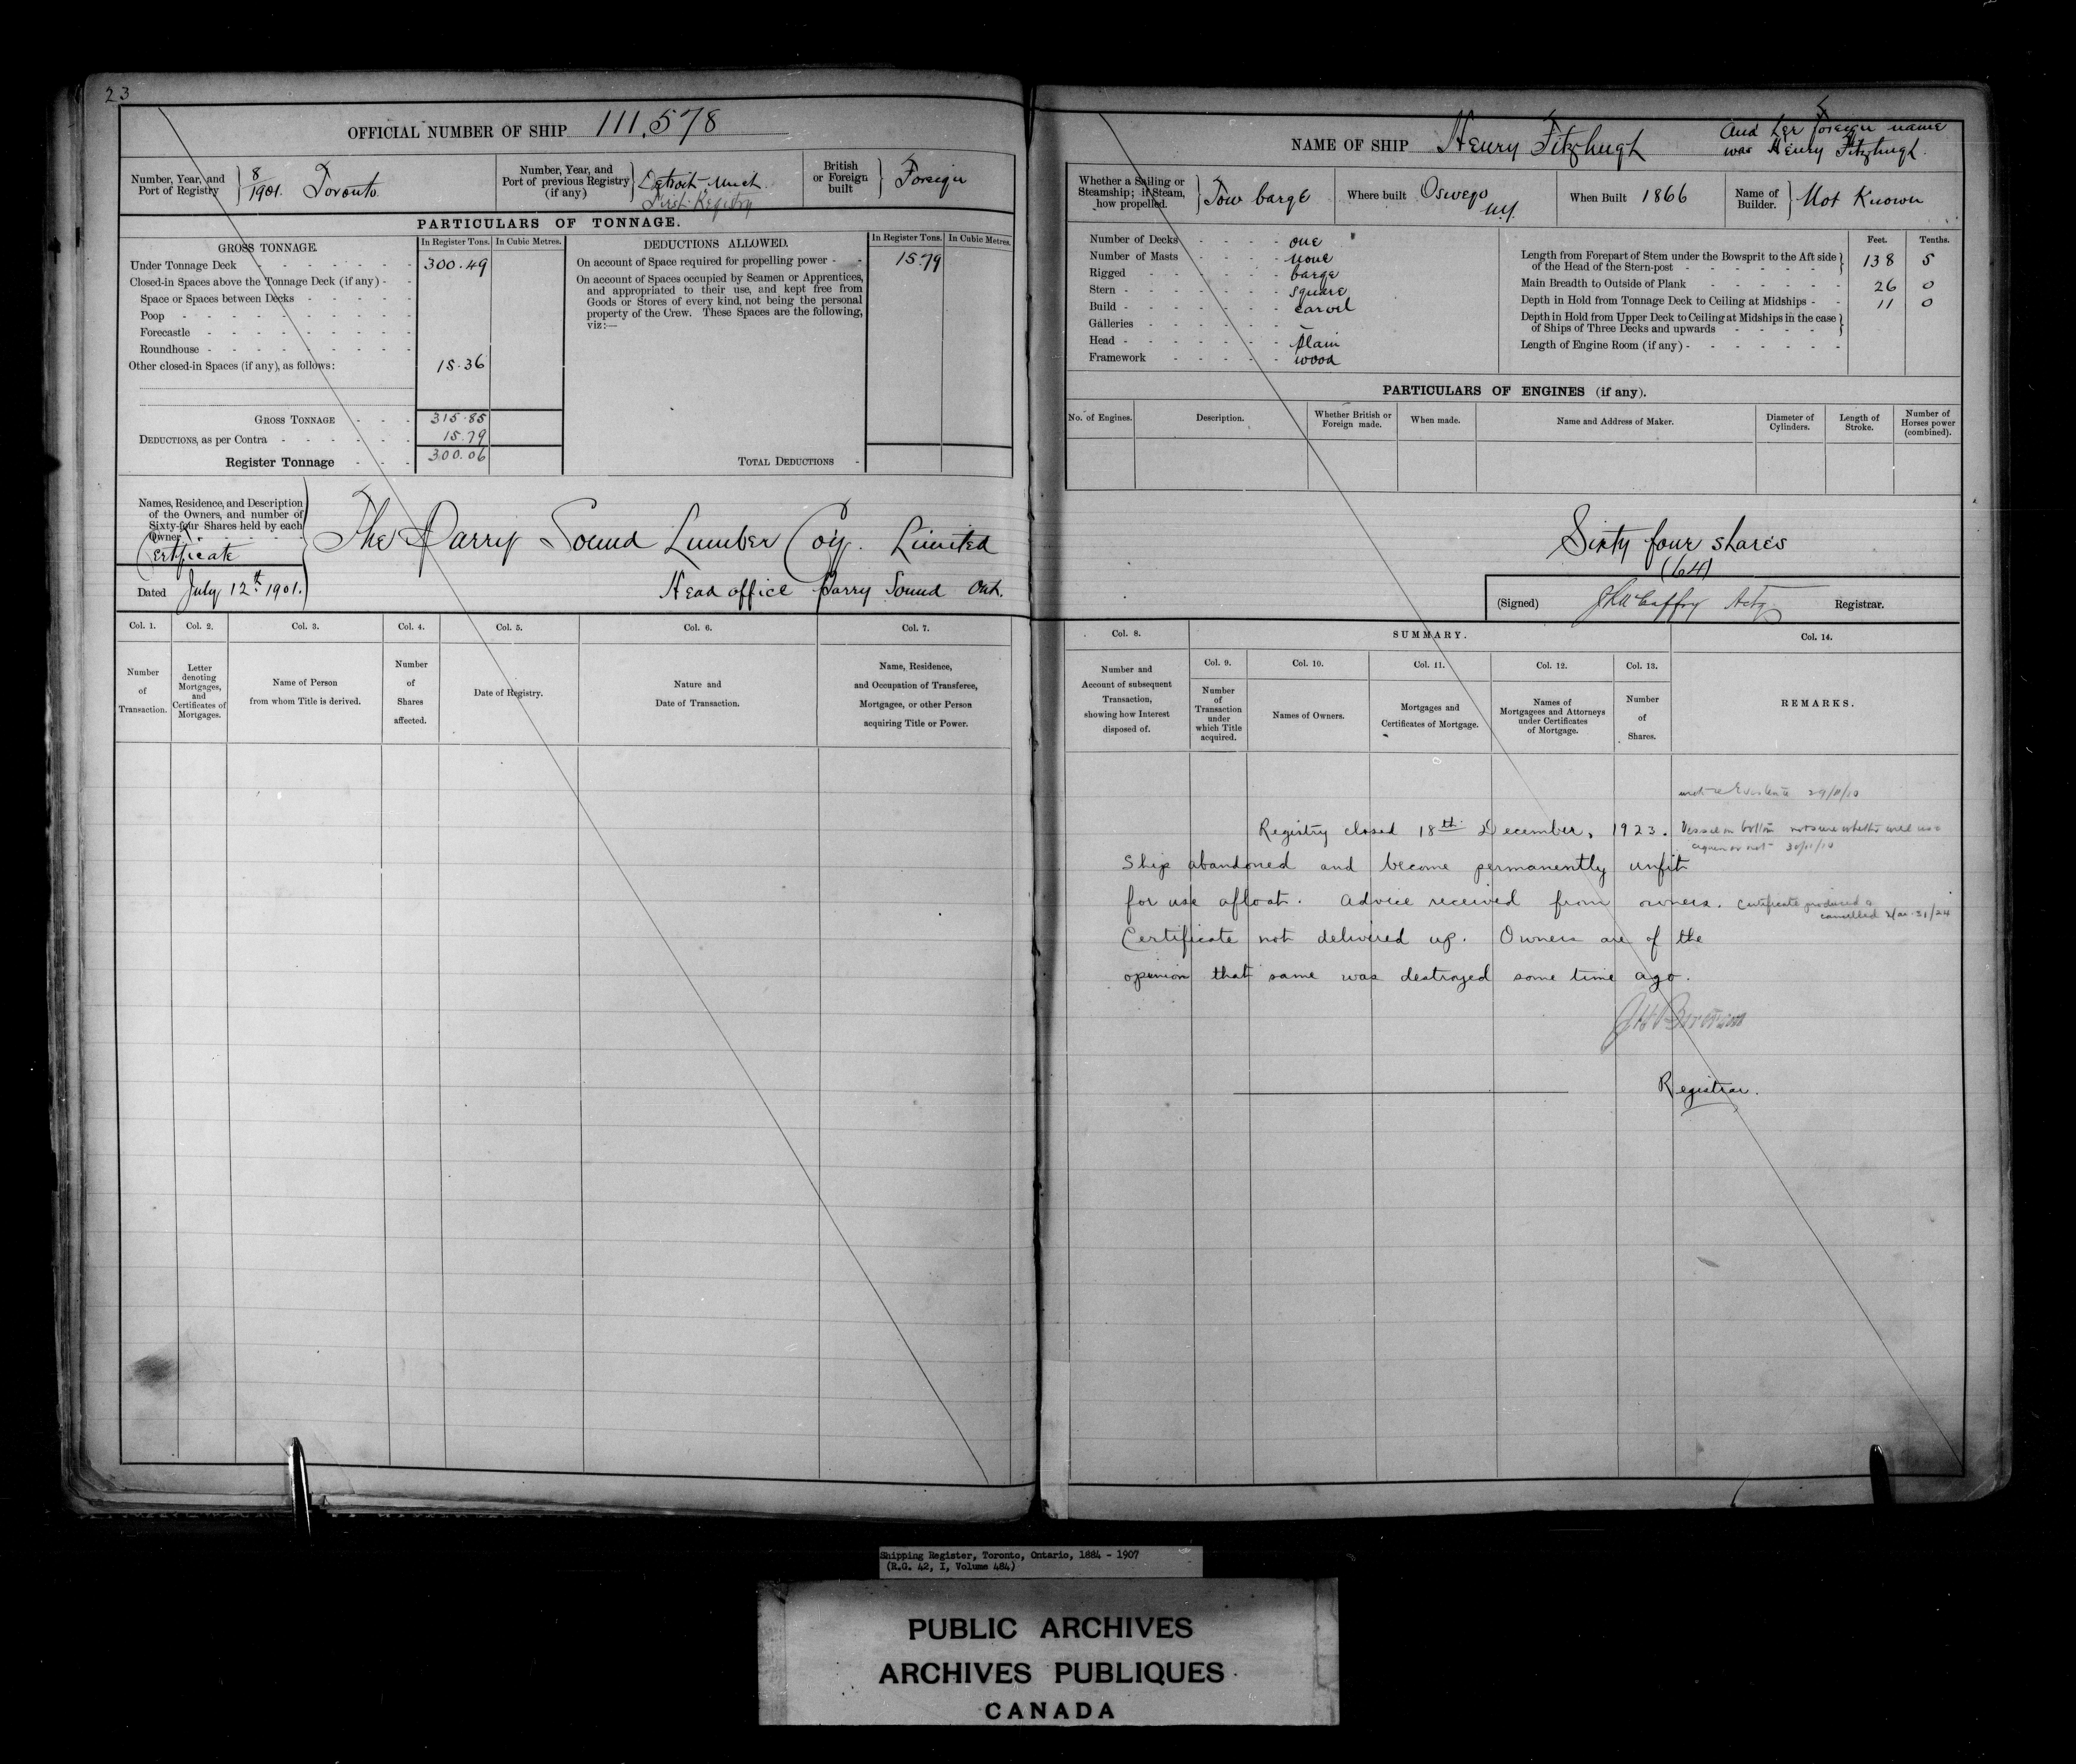 23
OFFICIAL NUMBER OF SHIP 111,578
Number, Year, and Port of Registry } 8/1901. Toronto
Number, Year, and Port of previous Registry (if any) } Detroit, Mich. First Registry
British or Foreign built } Foreign
PARTICULARS OF TONNAGE.
GROSS TONNAGE. In Register Tons. In Cubic Metres.
Under Tonnage Deck - - - - - - 300.49
Closed-in Spaces above the Tonnage Deck (if any) -
Space or Spaces between Decks - - - -
Poop - - - - - - - - -
Forecastle - - - - - - -
Roundhouse - - - - - - -
Other closed-in Spaces (if any), as follows: 15.36
GROSS TONNAGE - - - 315.85
DEDUCTIONS, as per Contra - - - - - - 15.79
Register Tonnage - - - 300.06
DEDUCTIONS ALLOWED. In Register Tons. In Cubic Metres.
On account of Space required for propelling power - - 15.79
On account of Spaces occupied by Seamen or Apprentices,
and appropriated to their use, and kept free from
Goods or Stores of every kind, not being the personal
property of the Crew. These Spaces are the following,
viz:—
TOTAL DEDUCTIONS -
Names, Residence, and Description
of the Owners, and number of
Sixty-four Shares held by each
Owner.
Certificate
Dated July 12th 1901.
The Parry Sound Lumber Coy. Limited
Head office Parry Sound Ont.
Col. 1. Col. 2. Col. 3. Col. 4. Col. 5. Col. 6. Col. 7.
Number of Transaction.
Letter denoting Mortgages, and Certificates of Mortgages.
Name of Person from whom Title is derived.
Number of Shares affected.
Date of Registry.
Nature and Date of Transaction.
Name, Residence, and Occupation of Transferee, Mortgagee, or other Person acquiring Title or Power.
NAME OF SHIP Henry Fitzhugh
And her foreign name
was Henry Fitzhugh.
Whether a Sailing or Steamship; if Steam, how propelled. } Tow barge
Where built Oswego N.Y.
When Built 1866
Name of Builder. } Not Known
Number of Decks - - - - one
Number of Masts - - - - none
Rigged - - - - - - barge
Stern - - - - - - - square
Build - - - - - - - carvel
Galleries - - - - - - –
Head - - - - - - - plain
Framework - - - - - wood
Feet. Tenths.
Length from Forepart of Stem under the Bowsprit to the Aft side
of the Head of the Stern-post - - - - - - } 138 5
Main Breadth to Outside of Plank - - - - - - 26 0
Depth in Hold from Tonnage Deck to Ceiling at Midships - - 11 0
Depth in Hold from Upper Deck to Ceiling at Midships in the case
of Ships of Three Decks and upwards - - - - }
Length of Engine Room (if any) - - - - - - -
PARTICULARS OF ENGINES (if any).
No. of Engines. Description. Whether British or Foreign made. When made. Name and Address of Maker. Diameter of Cylinders. Length of Stroke. Number of Horses power (combined).
Sixty four shares
(64)
(Signed) Actg Registrar.
Col. 8. SUMMARY. Col. 14.
Col. 9. Col. 10. Col. 11. Col. 12. Col. 13.
Number and Account of subsequent Transaction, showing how Interest disposed of.
Number of Transaction under which Title acquired.
Names of Owners.
Mortgages and Certificates of Mortgage.
Names of Mortgagees and Attorneys under Certificates of Mortgage.
Number of Shares.
REMARKS.
29/11/10
Registry closed 18th December, 1923.
Vessel on bottom not sure whether will use
again or not 30/11/10
Ship abandoned and become permanently unfit
for use afloat. Advice received from owners.
Certificate produced &
cancelled Mar 31/24
Certificate not delivered up. Owners are of the
opinion that same was destroyed some time ago.
Registrar.
Shipping Register, Toronto, Ontario, 1884 - 1907
(R.G. 42, I, Volume 484)
PUBLIC ARCHIVES
ARCHIVES PUBLIQUES
CANADA